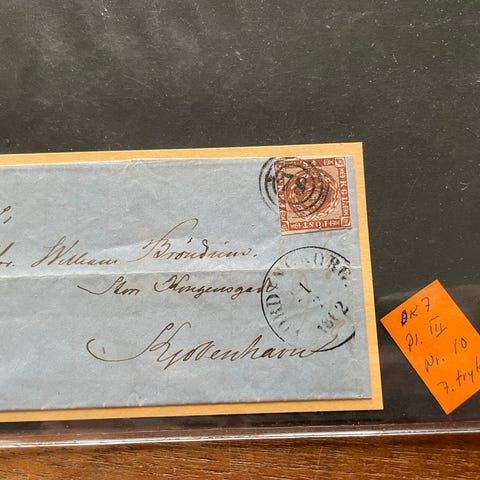 William Bröndum.
Stor Kongensgad
Kjöbenhavn
78
K.G.L.
POST
VORDINGBORG.
1
1862
DK 7
Pl. III
Nr. 10
7. tryk